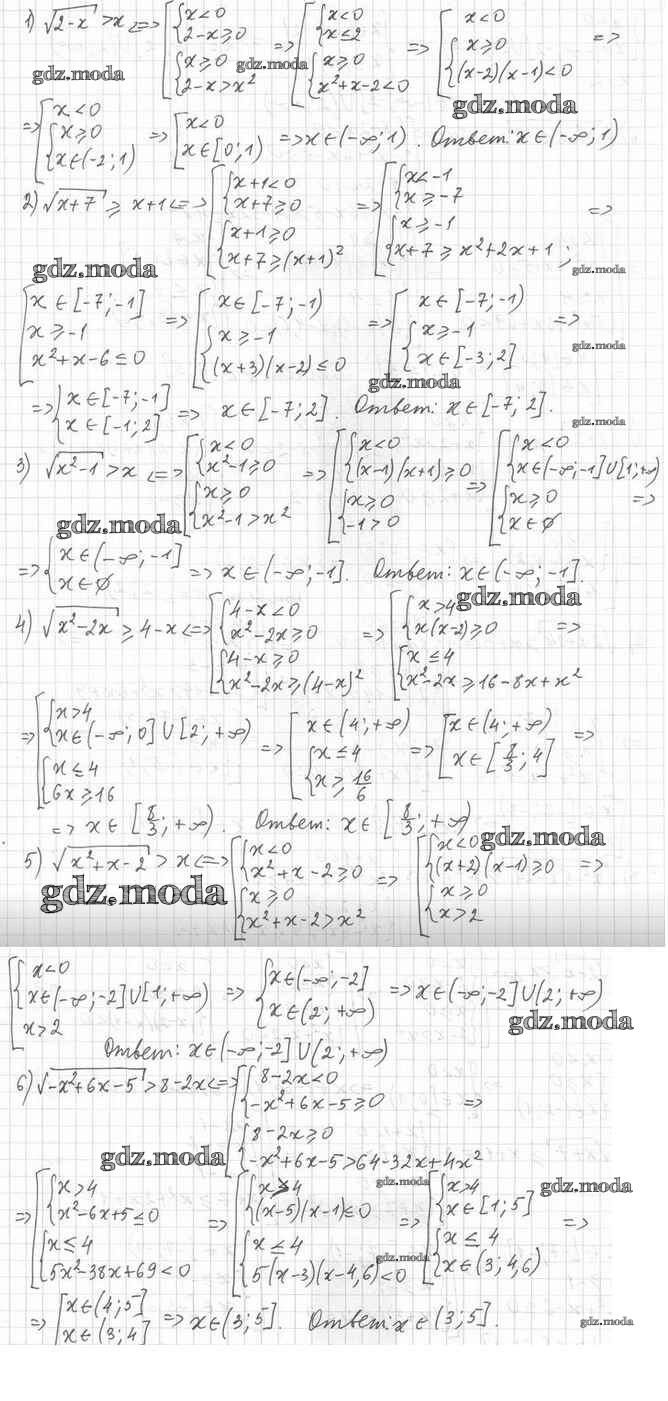 1) √(2-x) > x <=> [ { x<0
2-x⩾0
{ x⩾0
2-x>x²
=> [ { x<0
x≤2
{ x⩾0
x²+x-2<0
=> [ x<0
{ x⩾0
(x-2)(x-1)<0
=>
gdz.moda
gdz.moda
gdz.moda
=> [ x<0
{ x⩾0
x∈(-2;1)
=> [ x<0
x∈[0;1)
=> x∈(-∞;1). Ответ: x∈(-∞;1)
2) √(x+7) ⩾ x+1 <=> [ { x+1<0
x+7⩾0
{ x+1⩾0
x+7⩾(x+1)²
=> [ { x<-1
x⩾-7
{ x⩾-1
x+7⩾x²+2x+1 ;
=>
gdz.moda
gdz.moda
[ x∈[-7;-1]
x⩾-1
x²+x-6≤0
=> [ x∈[-7;-1)
{ x⩾-1
(x+3)(x-2)≤0
=> [ x∈[-7;-1)
{ x⩾-1
x∈[-3;2]
=>
gdz.moda
gdz.moda
=> { x∈[-7;-1]
x∈[-1;2]
=> x∈[-7;2]. Ответ: x∈[-7;2].
gdz.moda
3) √(x²-1) > x <=> [ { x<0
x²-1⩾0
{ x⩾0
x²-1>x²
=> [ { x<0
(x-1)(x+1)⩾0
{ x⩾0
-1>0
=> [ { x<0
x∈(-∞;-1]∪[1;+∞)
{ x⩾0
x∈∅
=>
gdz.moda
=> { x∈(-∞;-1]
x∈∅
=> x∈(-∞;-1]. Ответ: x∈(-∞;-1].
gdz.moda
4) √(x²-2x) ⩾ 4-x <=> [ { 4-x<0
x²-2x⩾0
{ 4-x⩾0
x²-2x⩾(4-x)²
=> [ { x>4
x(x-2)⩾0
{ x≤4
x²-2x⩾16-8x+x²
=>
=> [ { x>4
x∈(-∞;0]∪[2;+∞)
{ x≤4
6x⩾16
=> [ x∈(4;+∞)
{ x≤4
x⩾16/6
=> [ x∈(4;+∞)
x∈[8/3;4]
=>
=> x∈[8/3;+∞). Ответ: x∈[8/3;+∞)
5) √(x²+x-2) > x <=> [ { x<0
x²+x-2⩾0
{ x⩾0
x²+x-2>x²
=> [ { x<0
(x+2)(x-1)⩾0
{ x⩾0
x>2
=>
gdz.moda
gdz.moda
[ { x<0
x∈(-∞;-2]∪[1;+∞)
x>2
=> { x∈(-∞;-2]
x∈(2;+∞)
=> x∈(-∞;-2]∪(2;+∞)
gdz.moda
Ответ: x∈(-∞;-2]∪(2;+∞)
6) √(-x²+6x-5) > 8-2x <=> [ { 8-2x<0
-x²+6x-5⩾0
{ 8-2x⩾0
-x²+6x-5>64-32x+4x²
=>
gdz.moda
=> [ { x>4
x²-6x+5≤0
{ x≤4
5x²-38x+69<0
=> [ { x>4
(x-5)(x-1)≤0
{ x≤4
5(x-3)(x-4,6)<0
=> [ { x>4
x∈[1;5]
{ x≤4
x∈(3;4,6)
=>
gdz.moda
gdz.moda
gdz.moda
=> [ x∈(4;5]
x∈(3;4]
=> x∈(3;5]. Ответ: x∈(3;5].
gdz.moda